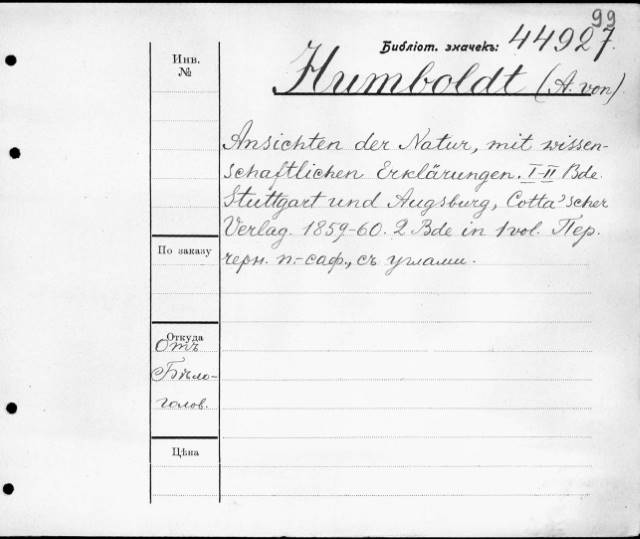 99
Библіот. значекъ: 44927.
Инв. №
Humboldt (A. von).
Ansichten der Natur, mit wissen-
schaftlichen Erklärungen. I-II Bde.
Stuttgart und Augsburg, Cotta'scher
Verlag. 1859-60. 2 Bde in 1 vol. Пер.
черн. п.-саф., съ углами.
По заказу
Откуда
Отъ
Бѣло-
голов.
Цѣна